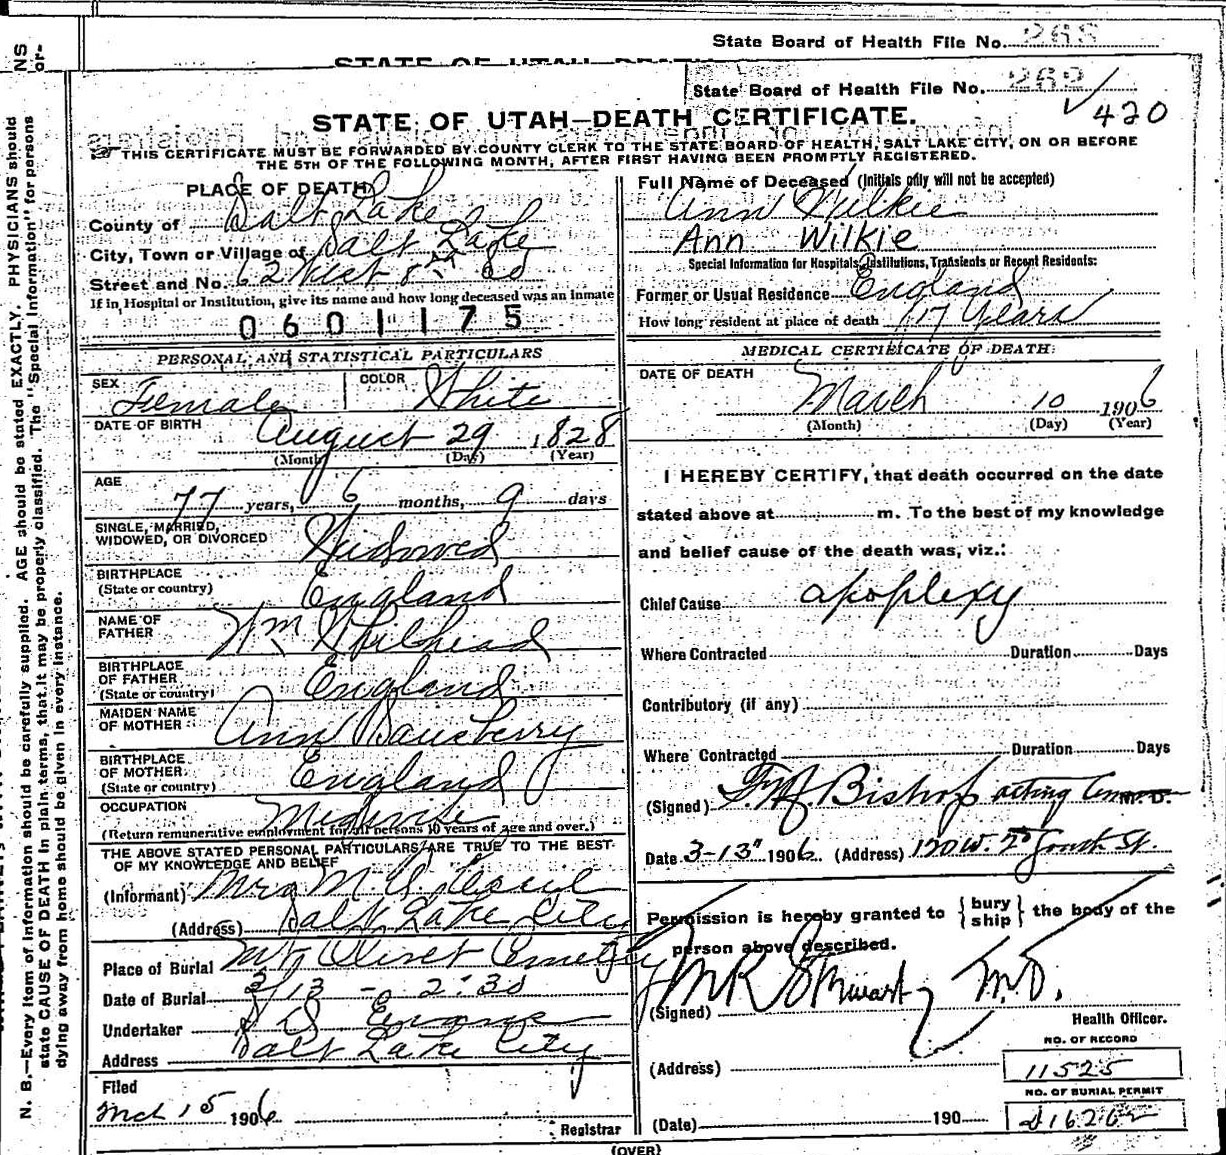 State Board of Health File No. 268
STATE OF UTAH—DEATH
State Board of Health File No. 262
420
STATE OF UTAH—DEATH CERTIFICATE.
THIS CERTIFICATE MUST BE FORWARDED BY COUNTY CLERK TO THE STATE BOARD OF HEALTH, SALT LAKE CITY, ON OR BEFORE
THE 5TH OF THE FOLLOWING MONTH, AFTER FIRST HAVING BEEN PROMPTLY REGISTERED.
PLACE OF DEATH
County of Salt Lake
City, Town or Village of Salt Lake
Street and No. 62 West 8th So
If in Hospital or Institution, give its name and how long deceased was an inmate
0601175
PERSONAL AND STATISTICAL PARTICULARS
SEX Female COLOR White
DATE OF BIRTH August 29 1828
(Month) (Day) (Year)
AGE
77 years, 6 months, 9 days
SINGLE, MARRIED,
WIDOWED, OR DIVORCED Widowed
BIRTHPLACE
(State or country) England
NAME OF
FATHER Wm
BIRTHPLACE
OF FATHER
(State or country) England
MAIDEN NAME
OF MOTHER Ann
BIRTHPLACE
OF MOTHER
(State or country) England
OCCUPATION Midwife
(Return remunerative employment for all persons 10 years of age and over.)
THE ABOVE STATED PERSONAL PARTICULARS ARE TRUE TO THE BEST
OF MY KNOWLEDGE AND BELIEF
(Informant) Mrs M.
(Address) Salt Lake City
Place of Burial Mt Olivet Cemetery
Date of Burial 3/13 - 2:30
Undertaker Evans
Address Salt Lake City
Filed
Mch 15 1906
Registrar
Full Name of Deceased (Initials only will not be accepted)
Ann Wilkie
Ann Wilkie
Special Information for Hospitals, Institutions, Transients or Recent Residents:
Former or Usual Residence England
How long resident at place of death 17 years
MEDICAL CERTIFICATE OF DEATH
DATE OF DEATH
March 10 1906
(Month) (Day) (Year)
I HEREBY CERTIFY, that death occurred on the date
stated above at m. To the best of my knowledge
and belief cause of the death was, viz.:
Chief Cause apoplexy
Where Contracted Duration Days
Contributory (if any)
Where Contracted Duration Days
(Signed) F.M. Bishop acting M. D.
Date 3-13" 1906. (Address) 120 W. South St.
Permission is hereby granted to { bury ship } the body of the
person above described.
(Signed) M R Stewart M.D.
Health Officer.
(Address)
NO. OF RECORD
11525
NO. OF BURIAL PERMIT
(Date) 190
(OVER)
N. B.—Every item of information should be carefully supplied. AGE should be stated EXACTLY. PHYSICIANS should
state CAUSE OF DEATH in plain terms, that it may be properly classified. The "Special Information" for persons
dying away from home should be given in every instance.